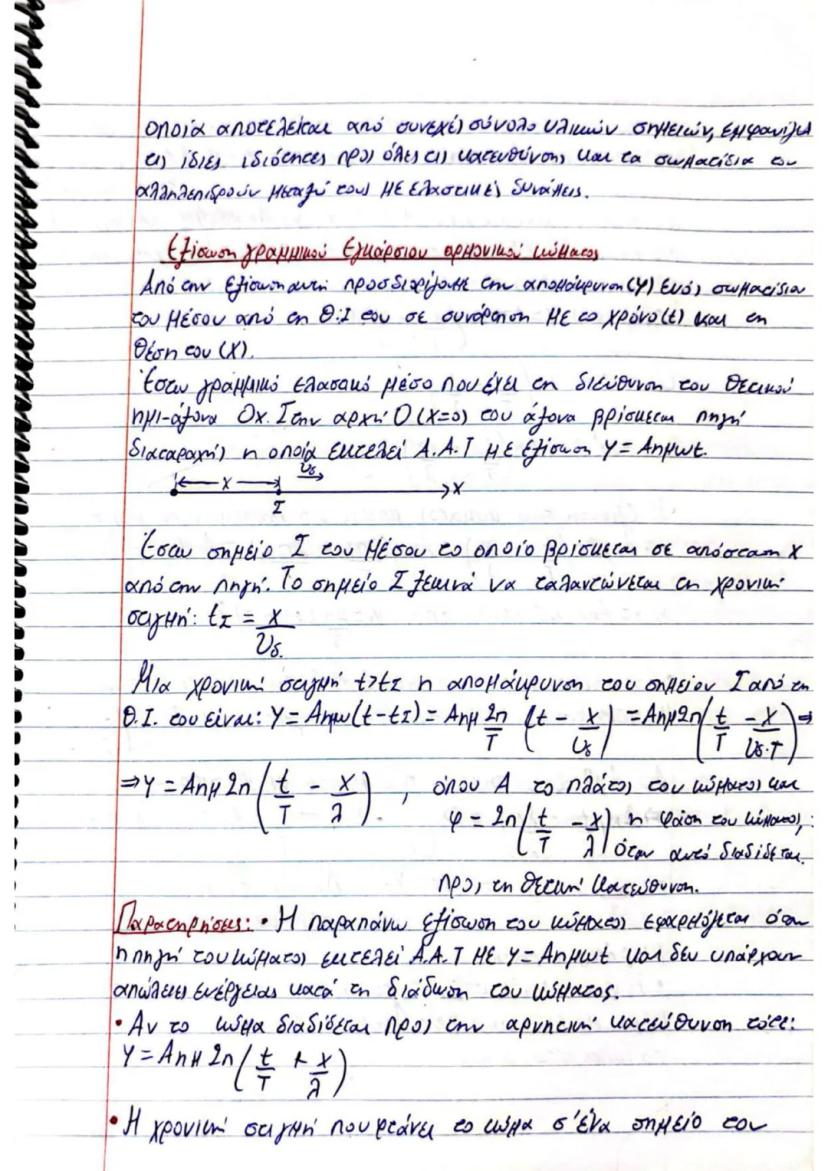 οποία αποτελείται από συνεχές σύνολο υλικών σημείων, εμφανίζει
τις ίδιες ιδιότητες προς όλες τις κατευθύνσεις και τα σωματίδια του
αλληλεπιδρούν μεταξύ τους με ελαστικές δυνάμεις.
Εξίσωση γραμμικού εγκάρσιου αρμονικού κύματος
Από την εξίσωση αυτή προσδιορίζουμε την απομάκρυνση (y) ενός σωματιδίου
του μέσου από τη Θ.Ι του σε συνάρτηση με το χρόνο (t) και τη
θέση του (x).
Έστω γραμμικό ελαστικό μέσο που έχει τη διεύθυνση του θετικού
ημι-άξονα Ox. Στην αρχή O (x=0) του άξονα βρίσκεται πηγή
διαταραχής η οποία εκτελεί Α.Α.Τ με εξίσωση y = Aημωt.
x υδ x
Σ
Έστω σημείο Σ του μέσου το οποίο βρίσκεται σε απόσταση x
από την πηγή. Το σημείο Σ ξεκινά να ταλαντώνεται τη χρονική
στιγμή: tΣ = x/υδ.
Μια χρονική στιγμή t>tΣ η απομάκρυνση του σημείου Σ από τη
Θ.Ι. του είναι: y = Aημω(t-tΣ) = Aημ 2π/T (t - x/υδ) = Aημ2π(t/T - x/υδ·T) ⇒
⇒ y = Aημ 2π(t/T - x/λ), όπου A το πλάτος του κύματος και
φ = 2π(t/T - x/λ) η φάση του κύματος,
όταν αυτό διαδίδεται
προς τη θετική κατεύθυνση.
Παρατηρήσεις: • Η παραπάνω εξίσωση του κύματος εφαρμόζεται όταν
η πηγή του κύματος εκτελεί Α.Α.Τ με y = Aημωt και δεν υπάρχουν
απώλειες ενέργειας κατά τη διάδοση του κύματος.
• Αν το κύμα διαδίδεται προς την αρνητική κατεύθυνση τότε:
y = Aημ 2π(t/T + x/λ)
• Η χρονική στιγμή που φτάνει το κύμα σ'ένα σημείο του